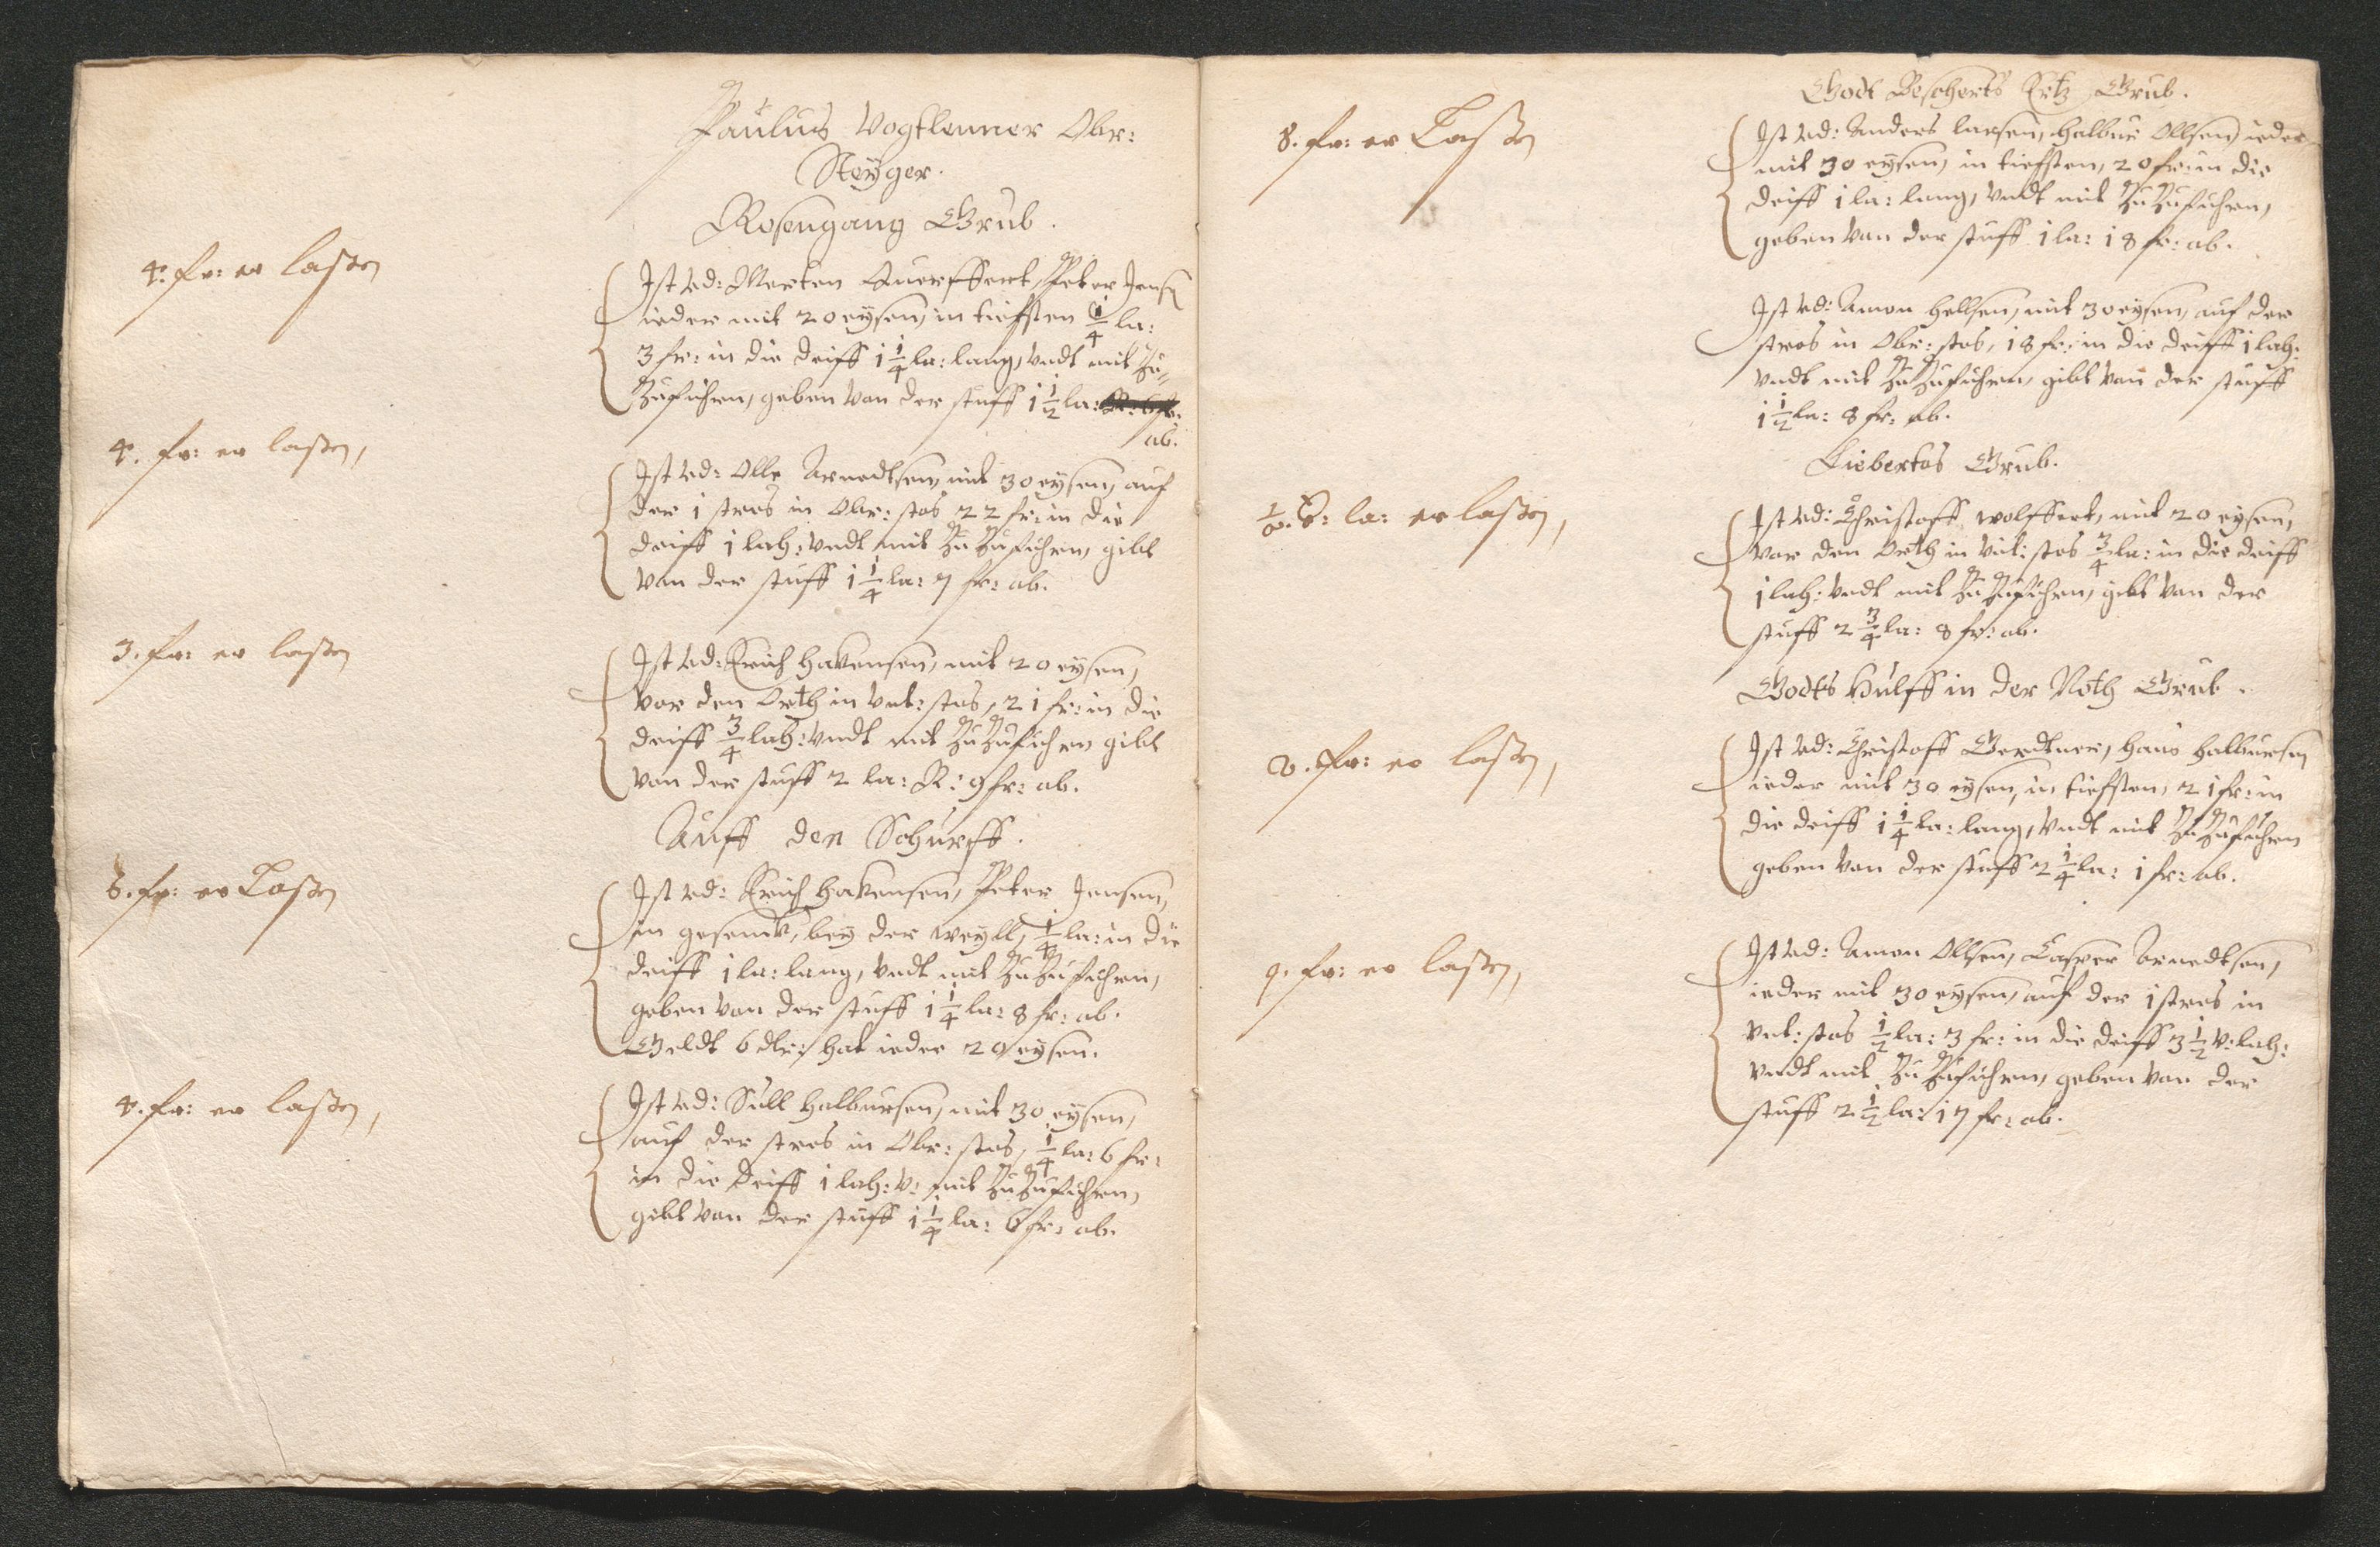 Paulus Vogtlenner Obr:
Steÿger.
Rosengang Grub.
4. fr: er lassen
Ist vd: Merten Querffert, Peter Jensen
ieder mit 20 eÿsen, in tieffsten 1/4 la:
3 fr: in die deiff 1 1/4 la: lang, vndt mit Zu=
Zufuhren, geben von der stuff 1 1/2 la:
ab.
4. fr: er lassen,
Ist vd: Olle Arnedtsen, mit 30 eÿsen, auf
der 1 stros in Obr: stos 22 fr: in die
deiff 1 lah: vndt mit Zu Zufuhren, gibt
von der stuff 1 1/4 la: 7 fr: ab.
3. fr: er lassen
Ist vd: Erich Hakensen, mit 20 eÿsen,
vor den Orth in vnt: stos, 21 fr: in die
deiff 3/4 lah: vndt mit Zu Zufuhren gibt
von der stuff 2 la: R: 9 fr: ab.
Auff den Schurff.
8. fr: er Lassen
Ist vd: Erich Hakensen, Peter Jensen,
in gesenk, beÿ der weÿll, 1/4 la: in die
deiff 1 la: lang, vndt mit Zu Zufuhren,
geben von der stuff 1 1/4 la: 8 fr: ab.
Geldt 6 dlr: hat ieder 20 eÿsen.
4. fr: er lassen,
Ist vd: Sull Halbursen, mit 30 eÿsen,
auf der stros in Obr: stos, 1/4 la: 6 fr:
in die deiff 1 lah: v: mit Zu Zufuhren,
gibt von der stuff 1 1/4 la: 6 fr: ab.
Godt Bescherts Ertz Grub.
8. fr: er Lassen
Ist vd: Anders Larsen, Halbur Ollsen, ieder
mit 30 eÿsen, in tieffsten, 20 fr: in die
deiff 1 la: lang, vndt mit Zu Zufuhren,
geben von der stuff 1 la: 18 fr: ab.
Ist vd: Amon Hellsen, mit 30 eÿsen, auf der
stros in Obr: stos, 18 fr: in die deiff 1 lah:
vndt mit Zu Zufuhren, gibt von der stuff
1 1/2 la: 8 fr: ab.
Liebertas Grub.
la: er lassen,
Ist vd: Christoff Wolffert, mit 20 eÿsen,
vor den Orth in vnt: stos 3/4 la: in die deiff
1 lah: vndt mit Zu Zufuhren, gibt von der
stuff 2 3/4 la: 8 fr: ab.
Godts Hulff in der Noth Grub.
2. fr: er lassen,
Ist vd: Christoff Gerdtner, Hans Halbursen
ieder mit 30 eÿsen, in tieffsten, 21 fr: in
die deiff 1 1/4 la: lang, vndt mit Zu Zufuhren
geben von der stuff 2 1/4 la: 1 fr: ab.
9. fr: er lassen,
Ist vd: Amon Ollsen, Casper Arnedtsen,
ieder mit 30 eÿsen, auf der 1 stros in
vnt: stos 1/2 la: 3 fr: in die deiff 3 1/2 v: lah:
vndt mit Zu Zufuhren, geben von der
stuff 2 1/2 la: 17 fr: ab.